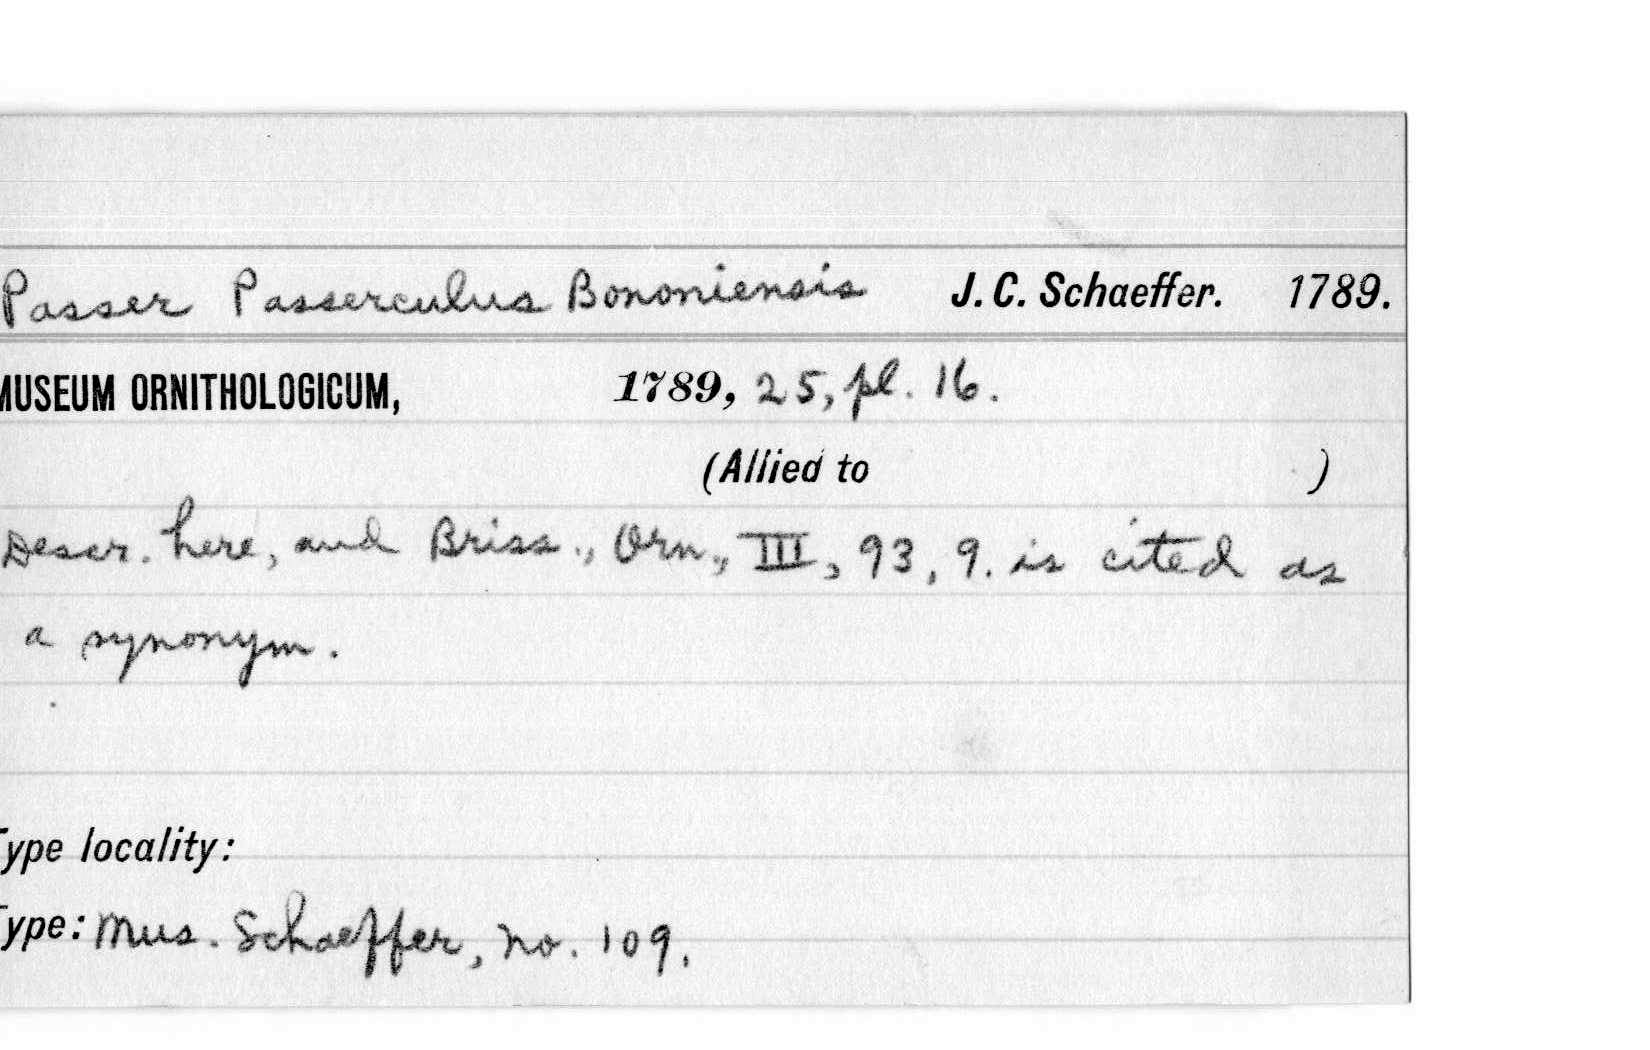 Passer Passerculus Bononiensis J. C. Schaeffer. 1789.
MUSEUM ORNITHOLOGICUM, 1789, 25, pl. 16.
(Allied to )
Descr. here, and Briss., Orn., III, 93, 9. is cited as
a synonym.
Type locality:
Type: Mus. Schaeffer, no. 109.